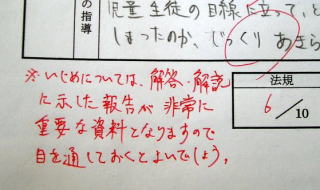 の指導
児童生徒の目線に立って、と
しまったのか、じっくり あきら
※いじめについては、解答・解説
に示した報告が 非常に
重要な資料となりますので
目を通しておくとよいでしょう。
法規
6/10